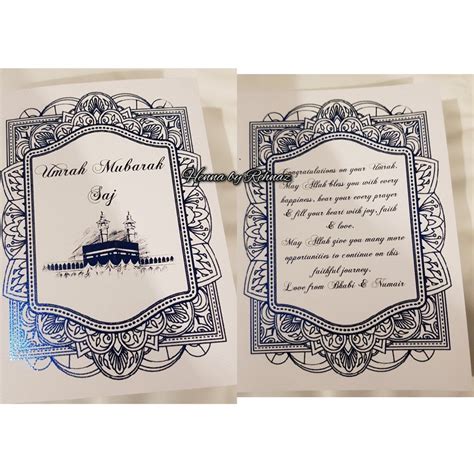 Umrah Mubarak
Saj
Henna by Rehnaz
Congratulations on your Umrah.
May Allah bless you with every
happiness, hear your every prayer
& fill your heart with joy, faith
& love.
May Allah give you many more
opportunities to continue on this
faithful journey.
Love from Bhabi & Numair